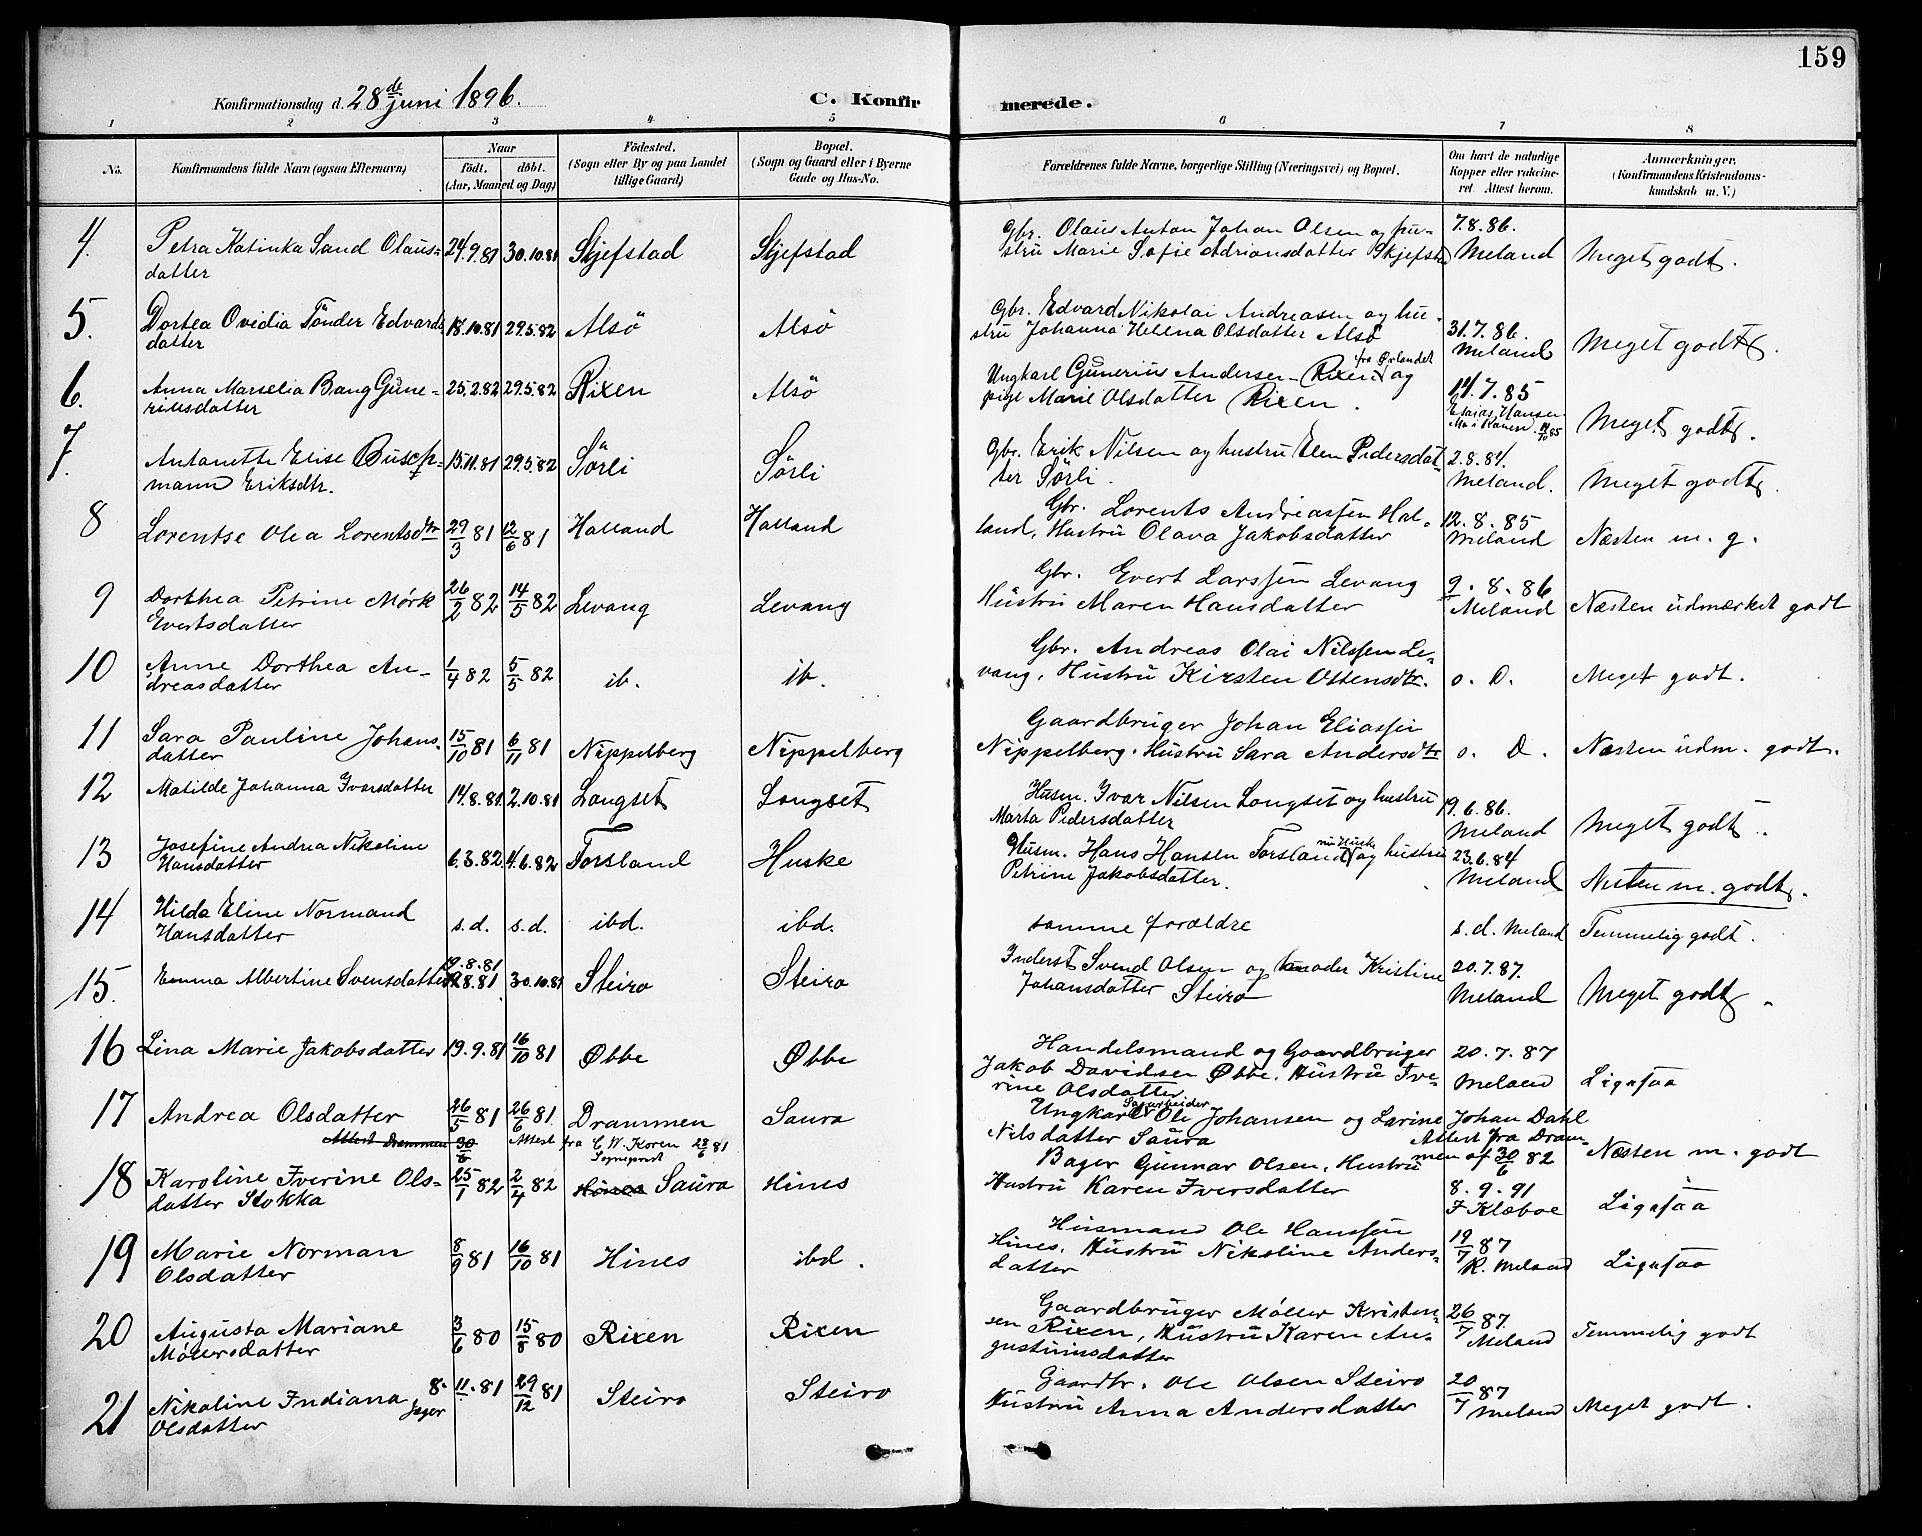 159
Konfirmationsdag d. 28de juni 1896. C. Konfirmerede.
1 2 3 4 5 6 7 8
No. Konfirmandens fulde Navn (ogsaa Efternavn) Naar født. døbt. (Aar, Maaned og Dag) Fødested. (Sogn eller By og paa Landet tillige Gaard) Bopæl. (Sogn og Gaard eller i Byerne Gade og Hus-No. Forældrenes fulde Navne, borgerlige Stilling (Næringsvei) og Bopæl. Om havt de naturlige Kopper eller vakcineret. Attest herom. Anmærkninger. (Konfirmandens Kristendomskundskab m. V.)
4. Petra Katinka Sand Olaus- 24.9.81 30.10.81 Skjefstad Skjefstad Gbr. Olaus Anton Johan Olsen og hu- 7.8.86.
datter stru Marie Sofie Adriansdatter Skjefstad Meland Meget godt.
5. Dortea Ovidia Tönder Edvards 18.10.81 29.5.82 Alsö Alsö Gbr. Edvard Nikolai Andreasen og hu-
datter stru Johanna Helena Olsdatter Alsö 31.7.86. Meland Meget godt.
6. Anna Marselia Bang Gune- 25.2.82 29.5.82 Rixen Alsö Ungkarl Gunerius Andersen Rixen fra Ørlandet og 14.7.85
riusdatter pige Marie Olsdatter Rixen. Esaias Hansen Meget godt.
7. Antonette Elise Busch- 15.11.81 29.5.82 Sörli Sörli Gbr. Erik Nilsen og hustru Elen Pedersdat- 2.8.84.
mann Eriksdtr. ter Sörli. Meland. Meget godt.
8 Lorentse Olea Lorentsdtr 29/3 81 12/6 81 Halland Halland Gbr. Lorents Andreassen Hal- 12.8.85
land, Hustru Olava Jakobsdatter Meland Næsten m. g.
9 Dorthea Petrine Mørk 26/2 82 14/5 82 Levang Levang Gbr. Evert Larssen Levang 9.8.86
Evertsdatter Hustru Maren Hansdatter Meland Næsten udmærket godt
10 Anne Dorthea An- 1/4 82 5/5 82 ib. ib. Gbr. Andreas Olai Nilssen Le-
dreasdatter vang, Hustru Kirsten Ottensdtr. o. D. Meget godt.
11 Sara Pauline Johans- 15/10 81 6/11 81 Nippelberg Nippelberg Gaardbruger Johan Eliassen
datter Nippelberg. Hustru Sara Andersdtr o. D. Næsten udm. godt.
12 Matilde Johanna Ivarsdatter 14.8.81 2.10.81 Langset Langset Husm. Ivar Nilsen Langset og hustru 19.6.86.
Marta Pedersdatter Meland Meget godt.
13 Josefine Andrea Nikoline 6.3.82 4.6.82 Forsland Huske Husm. Hans Hansen Forsland nu Huske og hustru 23.6.84
Hansdatter Petrine Jakobsdatter. Meland Næsten m. godt.
14 Hilda Eline Normand s.d. s.d. ibd. ibd. samme forældre s.d. Meland Temmelig godt.
Hansdatter
15. Emma Albertine Svensdatter 19.8.81 19.8.81 30.10.81 Steiro Steiro Inderst Svend Olsen og moder Kristine 20.7.87.
Johansdatter Steiro Meland Meget godt.
16 Lina Marie Jakobsdatter 19.9.81 16/10 81 Øbbe Øbbe Handelsmand og Gaardbruger 20.7.87
Jakob Davidsen Øbbe, Hustru Ive- Meland Ligesaa
rine Olsdatter
17 Andrea Olsdatter 26/5 81 26/6 81 Drammen Saura Ungkarl Sagarbeider Ole Johansen og Larine Johan Dahl
Attest Drammen 30/6 Attest fra C. W. Koren 28/6 81 Sogneprest Nilsdatter Saura Attest fra Drammen af 30/6 82 Næsten m. godt
18 Karoline Iverine Ols- 25/1 82 2/4 82 Hines Saura Hines Bager Gunnar Olsen, Hustru
datter Stokka Hustru Karen Iversdatter 8.9.91 F Klæboe Ligesaa
19 Marie Norman 8/9 81 16/10 81 Hines ibd. Husmand Ole Hanssen
Olsdatter Hines, Hustru Nikoline Anders- 19/7 87 R. Meland Ligesaa
datter
20 Augusta Mariane 3/6 80 15/8 80 Rixen Rixen Gaardbruger Møller Kristen- 26/7 87.
Møllersdatter sen Rixen, Hustru Karen Au- Meland Temmelig godt
gustinusdatter
21 Nikoline Indiana Jager 8.11.81 29/12 81 Steiro Steiro Gaardbr. Ole Olsen Steiro 20/7 87
Olsdatter Hustru Anna Andersdatter Meland Meget godt.